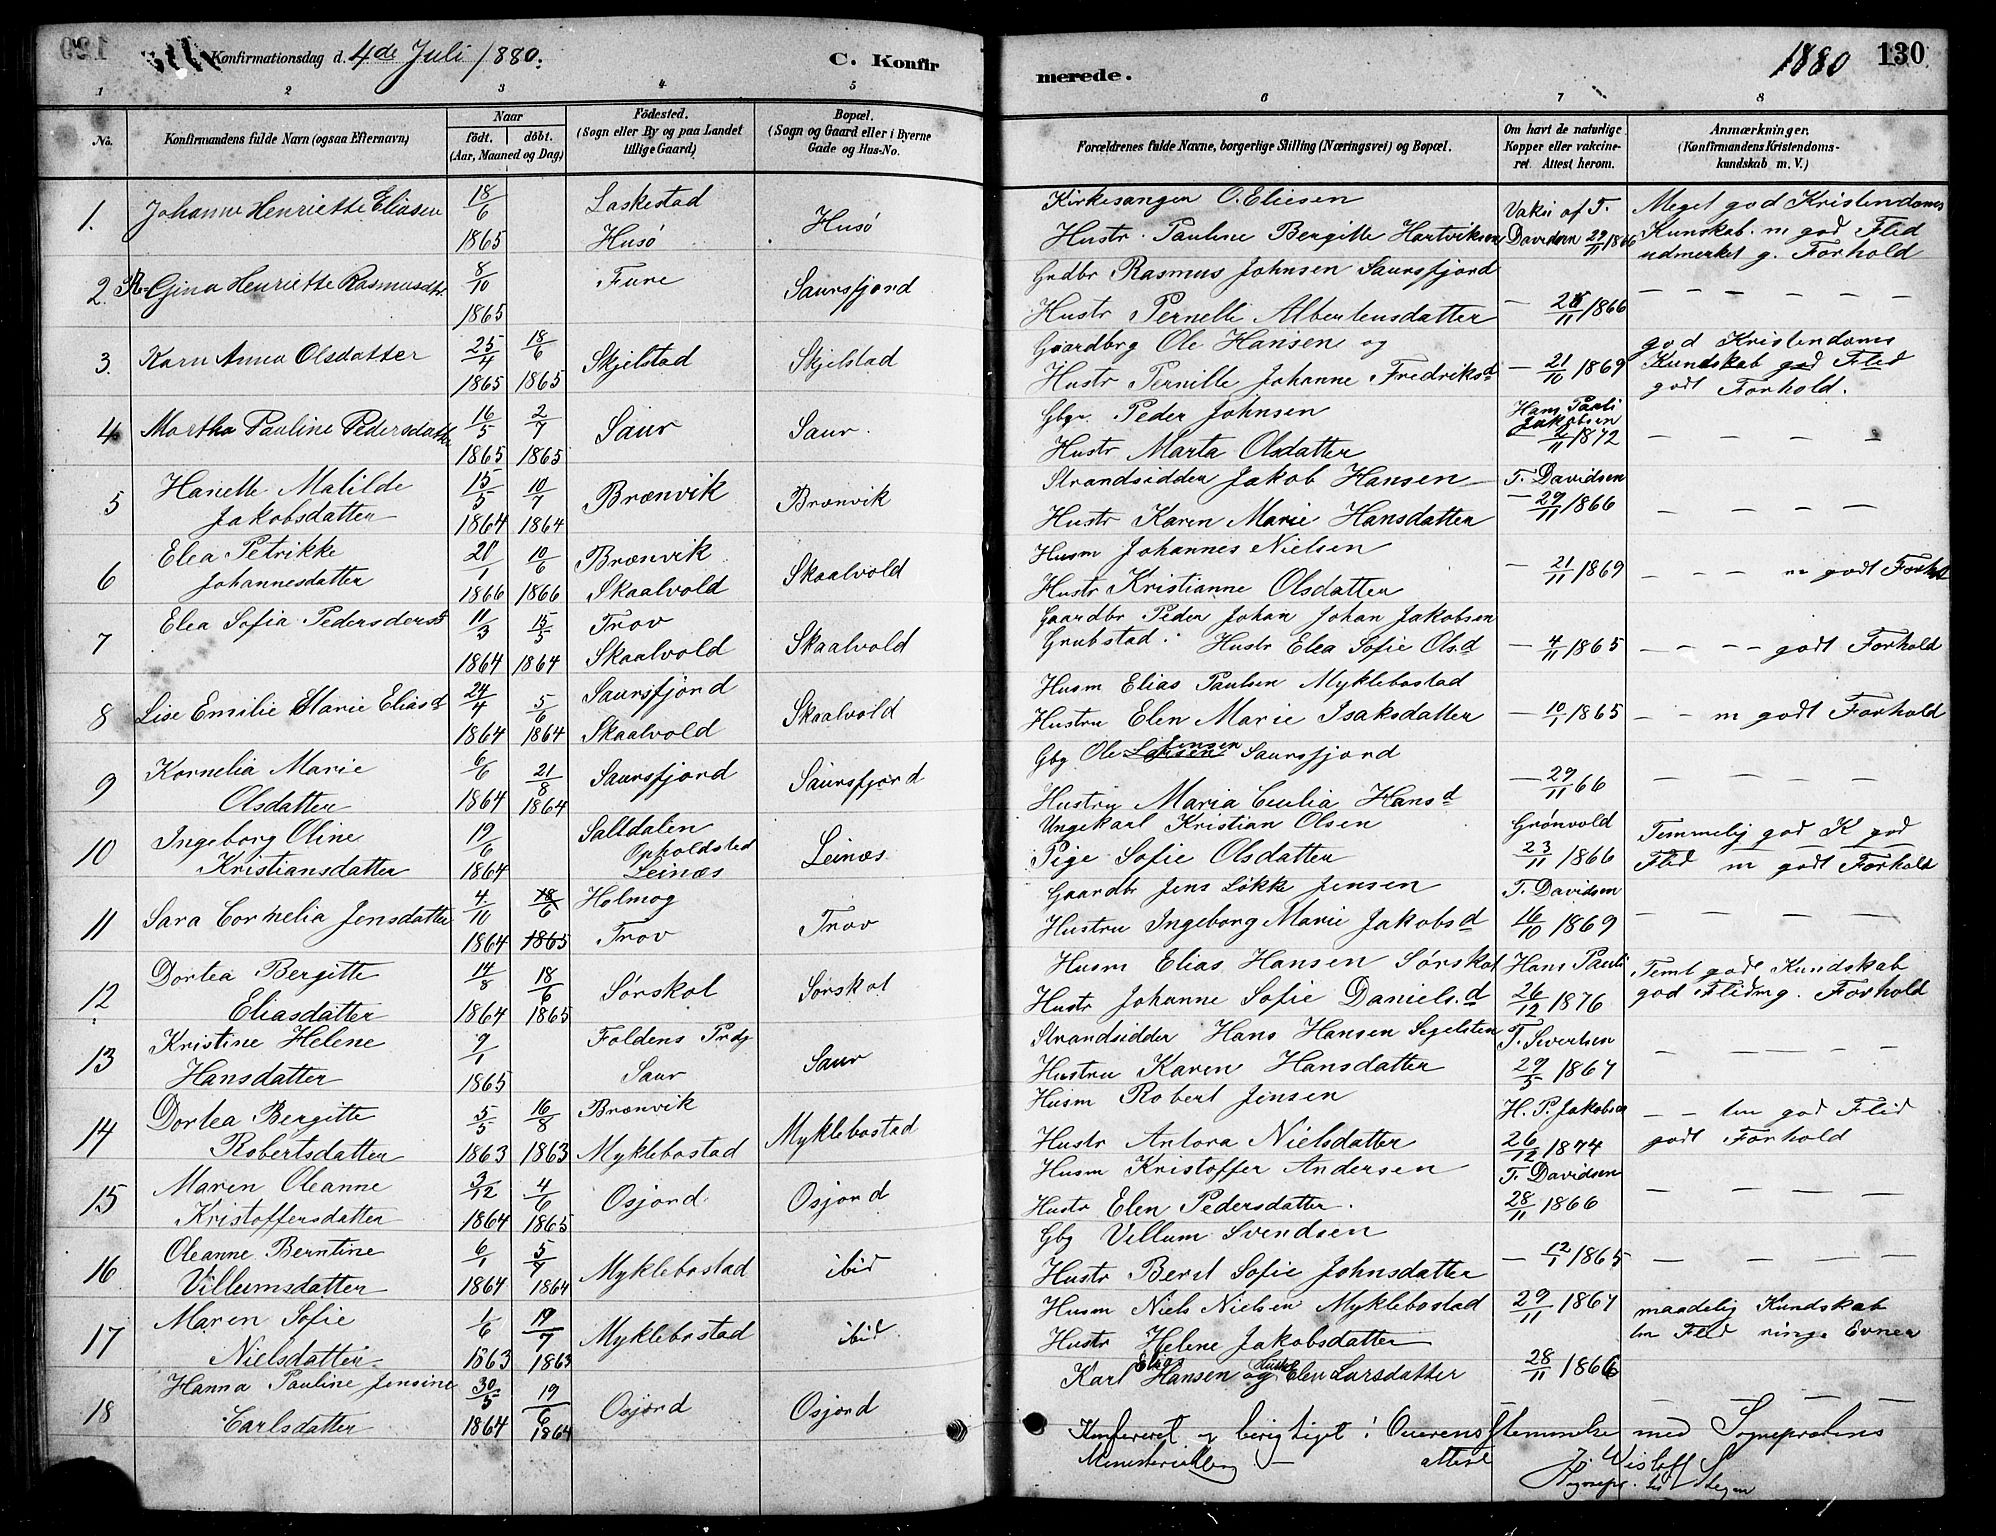 Konfirmationsdag d. 4de Juli 1880. C. Konfir
merede. 1880 130
1 2 3 4 5
6 7 8
No. Konfirmandens fulde Navn (ogsaa Efternavn) Naar födt. döbt. (Aar, Maaned og Dag) Födested. (Sogn eller By og paa Landet tillige Gaard) Bopæl. (Sogn og Gaard eller i Byerne Gade og Hus-No.
Forældrenes fulde Navne, borgerlige Stilling (Næringsvei) og Bopæl. Om havt de naturlige Kopper eller vakcineret. Attest herom. Anmærkninger. (Konfirmandens Kristendomskundskab m. V.)
1. Johanne Henriette Eliasen 18/6 1865 Laskestad Husö Husö
Kirkesanger O. Eliesen
Hustr. Pauline Bergitte Hartviksen Vaksi af T. Davidsen 29/11 1866 Meget god Kristendoms Kunskab m god Flid udmerket g. Forhold
2. Gina Henriette Rasmusdtr. 8/10 1865 Fure Saursfjord
Grdbr Rasmus Johnsen Saursfjord
Hustr Pernelle Albertensdatter — 28/11 1866 — — — — — —
3. Karn Anna Olsdatter 25/4 1865 18/6 1865 Skjelstad Skjelstad
Gaardbrg Ole Hansen og
Hustr Pernille Johanne Fredriksd — 21/10 1869 god Kristendoms Kundskab god Flid godt Forhold.
4 Martha Pauline Pedersdatter 16/5 1865 2/7 1865 Saur Saur.
Gbgr Peder Johnsen
Hustr Marta Olsdatter Hans Pauli Jakobsen 2/11 1872 — — — —
5 Hanette Matilde Jakobsdatter 15/5 1864 10/7 1864 Brænvik Brænvik
Strandsidder Jakob Hansen
Hustr Karen Marie Hansdatter T. Davidsen — 29/11 1866 — — — —
6 Elea Petrikke Johannesdatter 21/1 1866 10/6 1866 Brænvik Skaalvold Skaalvold
Husm Johannes Nielsen
Hustr Kristianne Olsdatter — 21/11 1869 — — — m godt Forhold
7 Elea Sofia Pedersders 11/3 1864 15/5 1864 Trov Skaalvold Skaalvold
Gaardbr Peder Johan Johan Jakobsen
Grubstad. Hustr Elea Sofie Ols.d — 4/11 1865 — — — — godt Forhold
8 Lise Emilie Marie Eliasd 24/4 1864 5/6 1864 Saursfjord Skaalvold Skaalvold
Husm Elias Paulsen Myklebostad
Hustru Elen Marie Isaksdatter — 10/1 1865 — — m godt Forhold
9 Kornelia Marie Olsdatter 6/6 1864 21/8 1864 Saursfjord Saursfjord
Gbg Ole Larsen Jensen Saursfjord
Hustru Maria Cecilia Hansd — 29/11 66 — — — —
10 Ingeborg Oline Kristiansdatter 19/6 1864 Saltdalen Opholdsted Leinæs Leinæs
Ungekarl Kristian Olsen
Pige Sofie Olsdatter Grönvold 23/11 1866 Temmelig god K god Flid m godt Forhold
11 Sara Cornelia Jensdatter 4/10 1864 18/6 1865 Holmog Trov Trov
Gaardbr Jens Løkke Jensen
Hustru Ingeborg Marie Jakobsd T. Davidsen 16/10 1869 — — — —
12 Dortea Bergitte Eliasdatter 14/8 1864 18/6 1865 Sørskot Sørskot
Husm Elias Hansen Sørskot
Hustr Johanne Sofie Daniels.d Hans Pauli 26/12 1876 Teml godt Kundskab god Flid mg. Forhold
13 Kristine Helene Hansdatter 7/1 1865 Foldens Prdg Saur Saur
Strandsidder Hans Hansen Segelsten
Hustru Karen Hansdatter T. Sivertsen 29/5 1867 — — — —
14 Dortea Bergitte Robertsdatter 5/5 1863 16/8 1863 Brænvik Myklebostad Myklebostad
Husm Robert Jensen
Hustr Antora Nielsdatter H. P. Jakobsen 26/12 1874 — — tm god Flid godt Forhold
15 Maren Oleanne Kristoffersdatter 3/12 1864 4/6 1865 Osjord Osjord
Husm Kristoffer Andersen
Hustr Elen Pedersdatter. T. Davidsen 28/11 1866 — — — —
16 Oleanne Berntine Villumsdatter 6/1 1864 5/7 1864 Myklebostad ibid
Gbg Villum Svendsen
Hustr Beret Sofie Johnsdatter — 12/1 1865 — — — —
17 Maren Sofie Nielsdatter 1/6 1863 19/7 1863 Myklebostad ibid.
Husm Niels Nielsen Myklebostad
Hustr Helene Jakobsdatter 29/11 1867 maadelig Kundskab tm Flid ringe Evner
18 Hanna Pauline Jensine Carlsdatter 30/5 1864 19/6 1864 Osjord Osjord
Karl Elias Hansen og Hustr Elen Larsdatter 28/11 1866 — — —
Konfereret og berigtiget i Overensstemmelse med Sogneprestens
Ministerialbog — attest
Wisløff
Sognepr. til Stegen